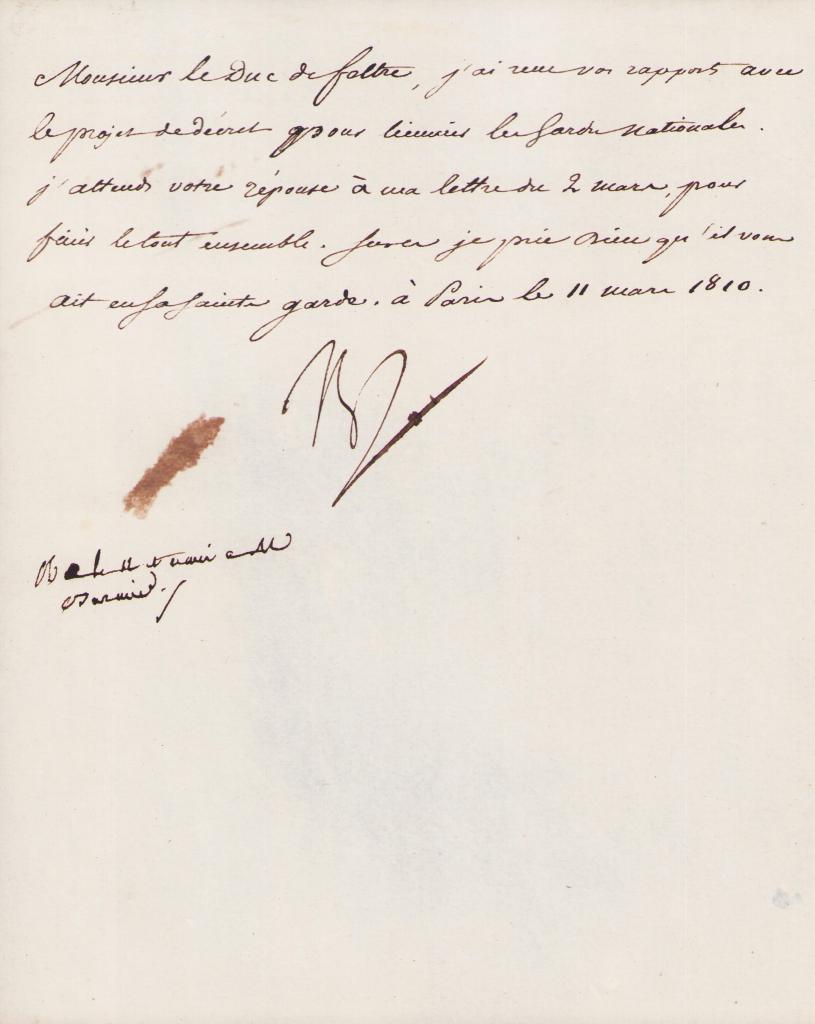 Monsieur le Duc de feltre, j'ai reçu vos rapports avec
le projet de décret pour licencier les gardes nationales.
j'attends votre réponse à ma lettre du 2 mars, pour
finir le tout ensemble. Sur ce je prie Dieu qu'il vous
ait en sa sainte garde. à Paris le 11 mars 1810.